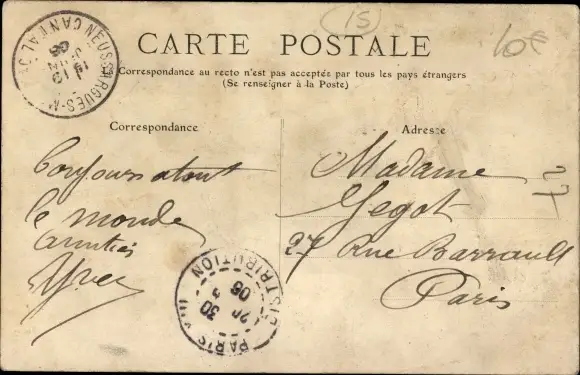 15
10€
CARTE POSTALE
La Correspondance au recto n'est pas acceptée par tous les pays étrangers
(Se renseigner à la Poste)
NEUSSARGUES-M
CANTAL
19
06
Correspondance
Adresse
bonjour a tout
le monde
amitiés
Yves
Madame
Gegot
27 Rue Barrault
Paris
PARIS
DISTRIBUTION
30
20
06